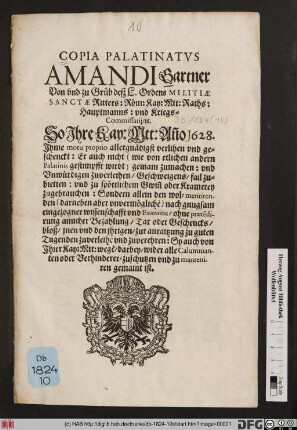 10
COPIA PALATINATVS
AMANDI Gartner
Von vnd zu Grüb deß L. Ordens MILITIÆ
SANCTÆ Ritters: Röm: Kay: Mtt: Raths:
Hauptmanns: vnd Kriegs-
Commissarij/ꝛc.
So Ihre Kay: Mtt: Año 1628.
Ihme motu proprio allergnädigst verlihen vnd ge-
schenckt: Er auch nicht (wie von etlichen andern
Palatinis geschimpfft wirdt) gemain zumachen: vnd
Vnwürdigen zuverleihen/ Geschweigens/ fail zu-
bietten: vnd zu spöttischem Gwiñ oder Krametey
zugebrauchen: Sondern allein den wol-meritiren-
den/ darneben aber vnvermögliche/ nach gnugsam
eingezogner wissenschafft vnd Examine/ ohne prætēdi-
rung ainicher Bezahlung/ Tax oder Geschencks/
bloß/ jnen vnd den jhrigen/ zur anraitzung zu guten
Tugenden zuverleihē/ vnd zuverehren: So auch von
Ihrer Kay: Mtt: wegē/ darbey/ wider alle Calumnian-
ten oder Verhinderer/ zuschutzen vnd zu manteni-
ren gemaint ist.
Db
1824
10
Herzog August Bibliothek
Wolfenbüttel
DFG
(c) HAB http://diglib.hab.de/drucke/db-1824-10s/start.htm?image=00001